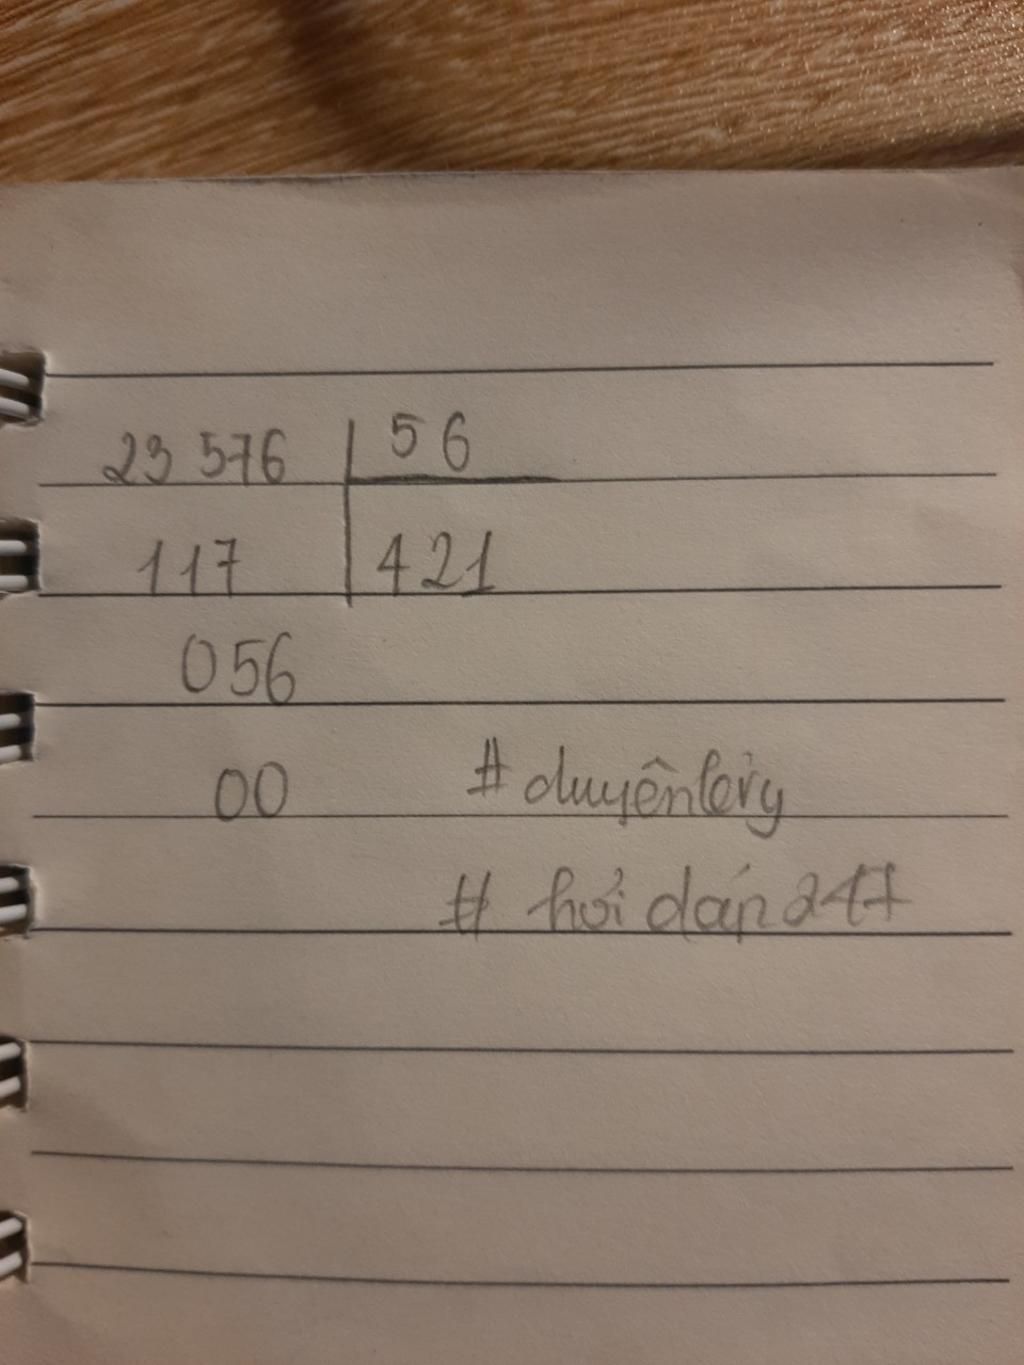 23 576 56
117 421
056
00 #duyênlévy
# hỏi dáp 247